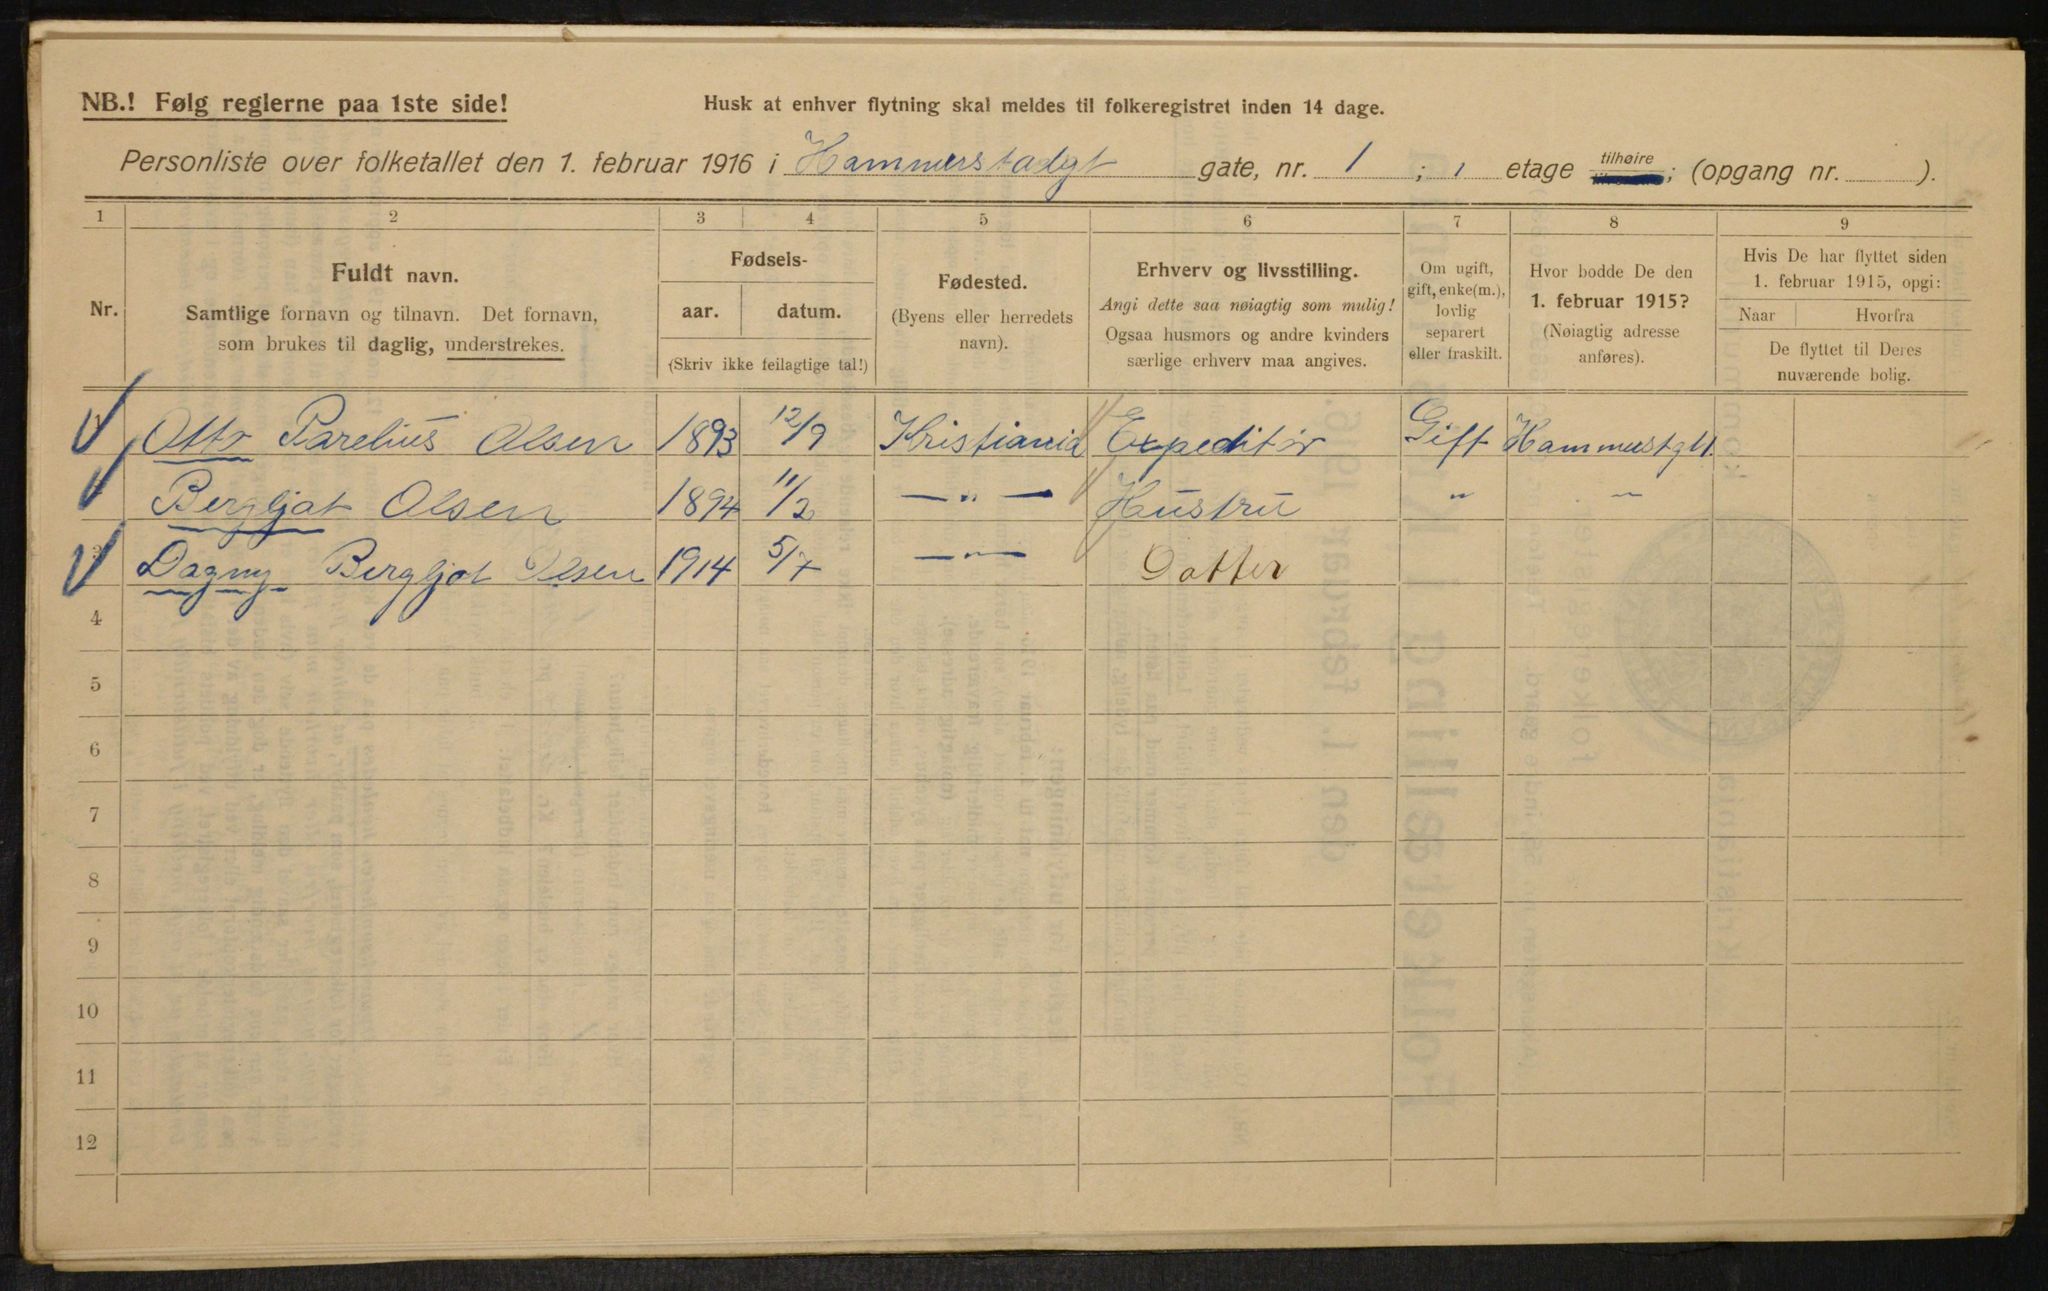 NB.! Følg reglerne paa 1ste side!
Husk at enhver flytning skal meldes til folkeregistret inden 14 dage.
Personliste over folketallet den 1. februar 1916 i Hammerstadgt gate, nr. 1 ; 1 etage tilhøire ; (opgang nr. ).
1 2 3 4 5 6 7 8 9
Nr.
Fuldt navn.
Samtlige fornavn og tilnavn. Det fornavn,
som brukes til daglig, understrekes.
Fødsels-
aar. datum.
(Skriv ikke feilagtige tal!)
Fødested.
(Byens eller herredets
navn).
Erhverv og livsstilling.
Angi dette saa nøiagtig som mulig!
Ogsaa husmors og andre kvinders
særlige erhverv maa angives.
Om ugift,
gift, enke(m.),
lovlig
separert
eller fraskilt.
Hvor bodde De den
1. februar 1915?
(Nøiagtig adresse
anføres).
Hvis De har flyttet siden
1. februar 1915, opgi:
Naar Hvorfra
De flyttet til Deres
nuværende bolig.
Otto Parelius Olsen 1893 12/9 Kristiania Expeditør Gift Hammerstgt 1.
Bergljot Olsen 1894 11/2 — „ — Hustru „ „
3 Dagny Bergljot Olsen 1914 5/7 — „ — Datter
4
5
6
7
8
9
10
11
12